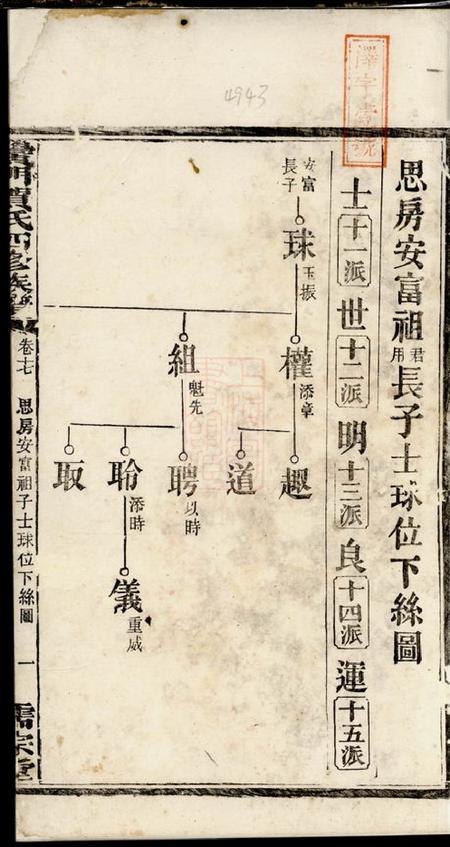 澤字壹號
4943
思房安富祖君用長子士球位下絲圖
士十一派世十二派明十三派良十四派運十五派
安富長子
球玉振
權添章
組魁先
趣
道
聘以時
聆添時
取
儀重威
賈氏四修族譜
卷十七
思房安富祖子士球位下絲圖
一
儒宗堂